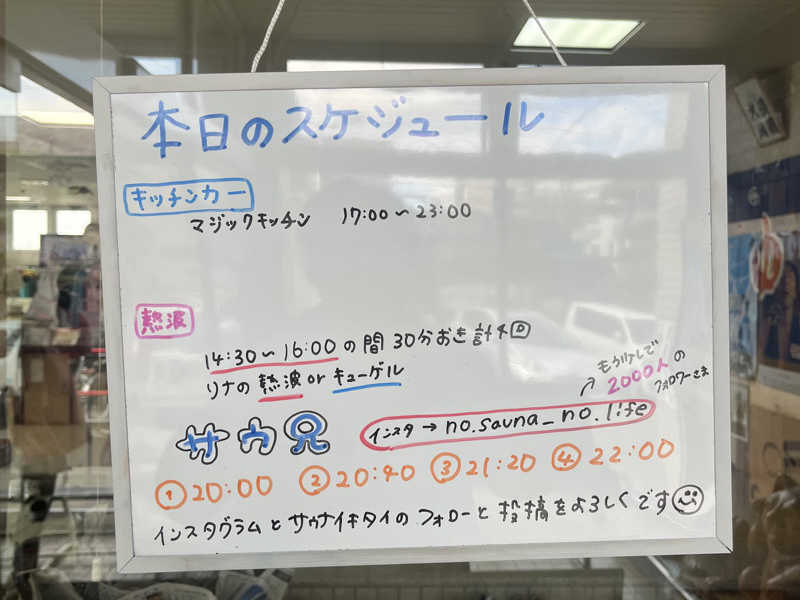 本日のスケジュール
キッチンカー
マジックキッチン 17:00〜23:00
熱波
14:30〜16:00の間30分おき計4回
リナの熱波orキューゲル
もう少しで
2000人の
フォロワーさま
サウ兄
インスタ→no.sauna_no.life
①20:00 ②20:40 ③21:20 ④22:00
インスタグラムとサウナイキタイのフォローと投稿をよろしくです